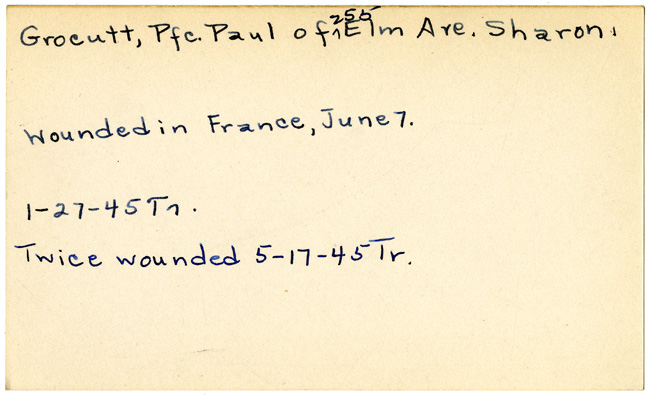 Grocutt, Pfc. Paul of 255 Elm Ave. Sharon.
Wounded in France, June 7.
1-27-45 Tr.
Twice wounded 5-17-45 Tr.